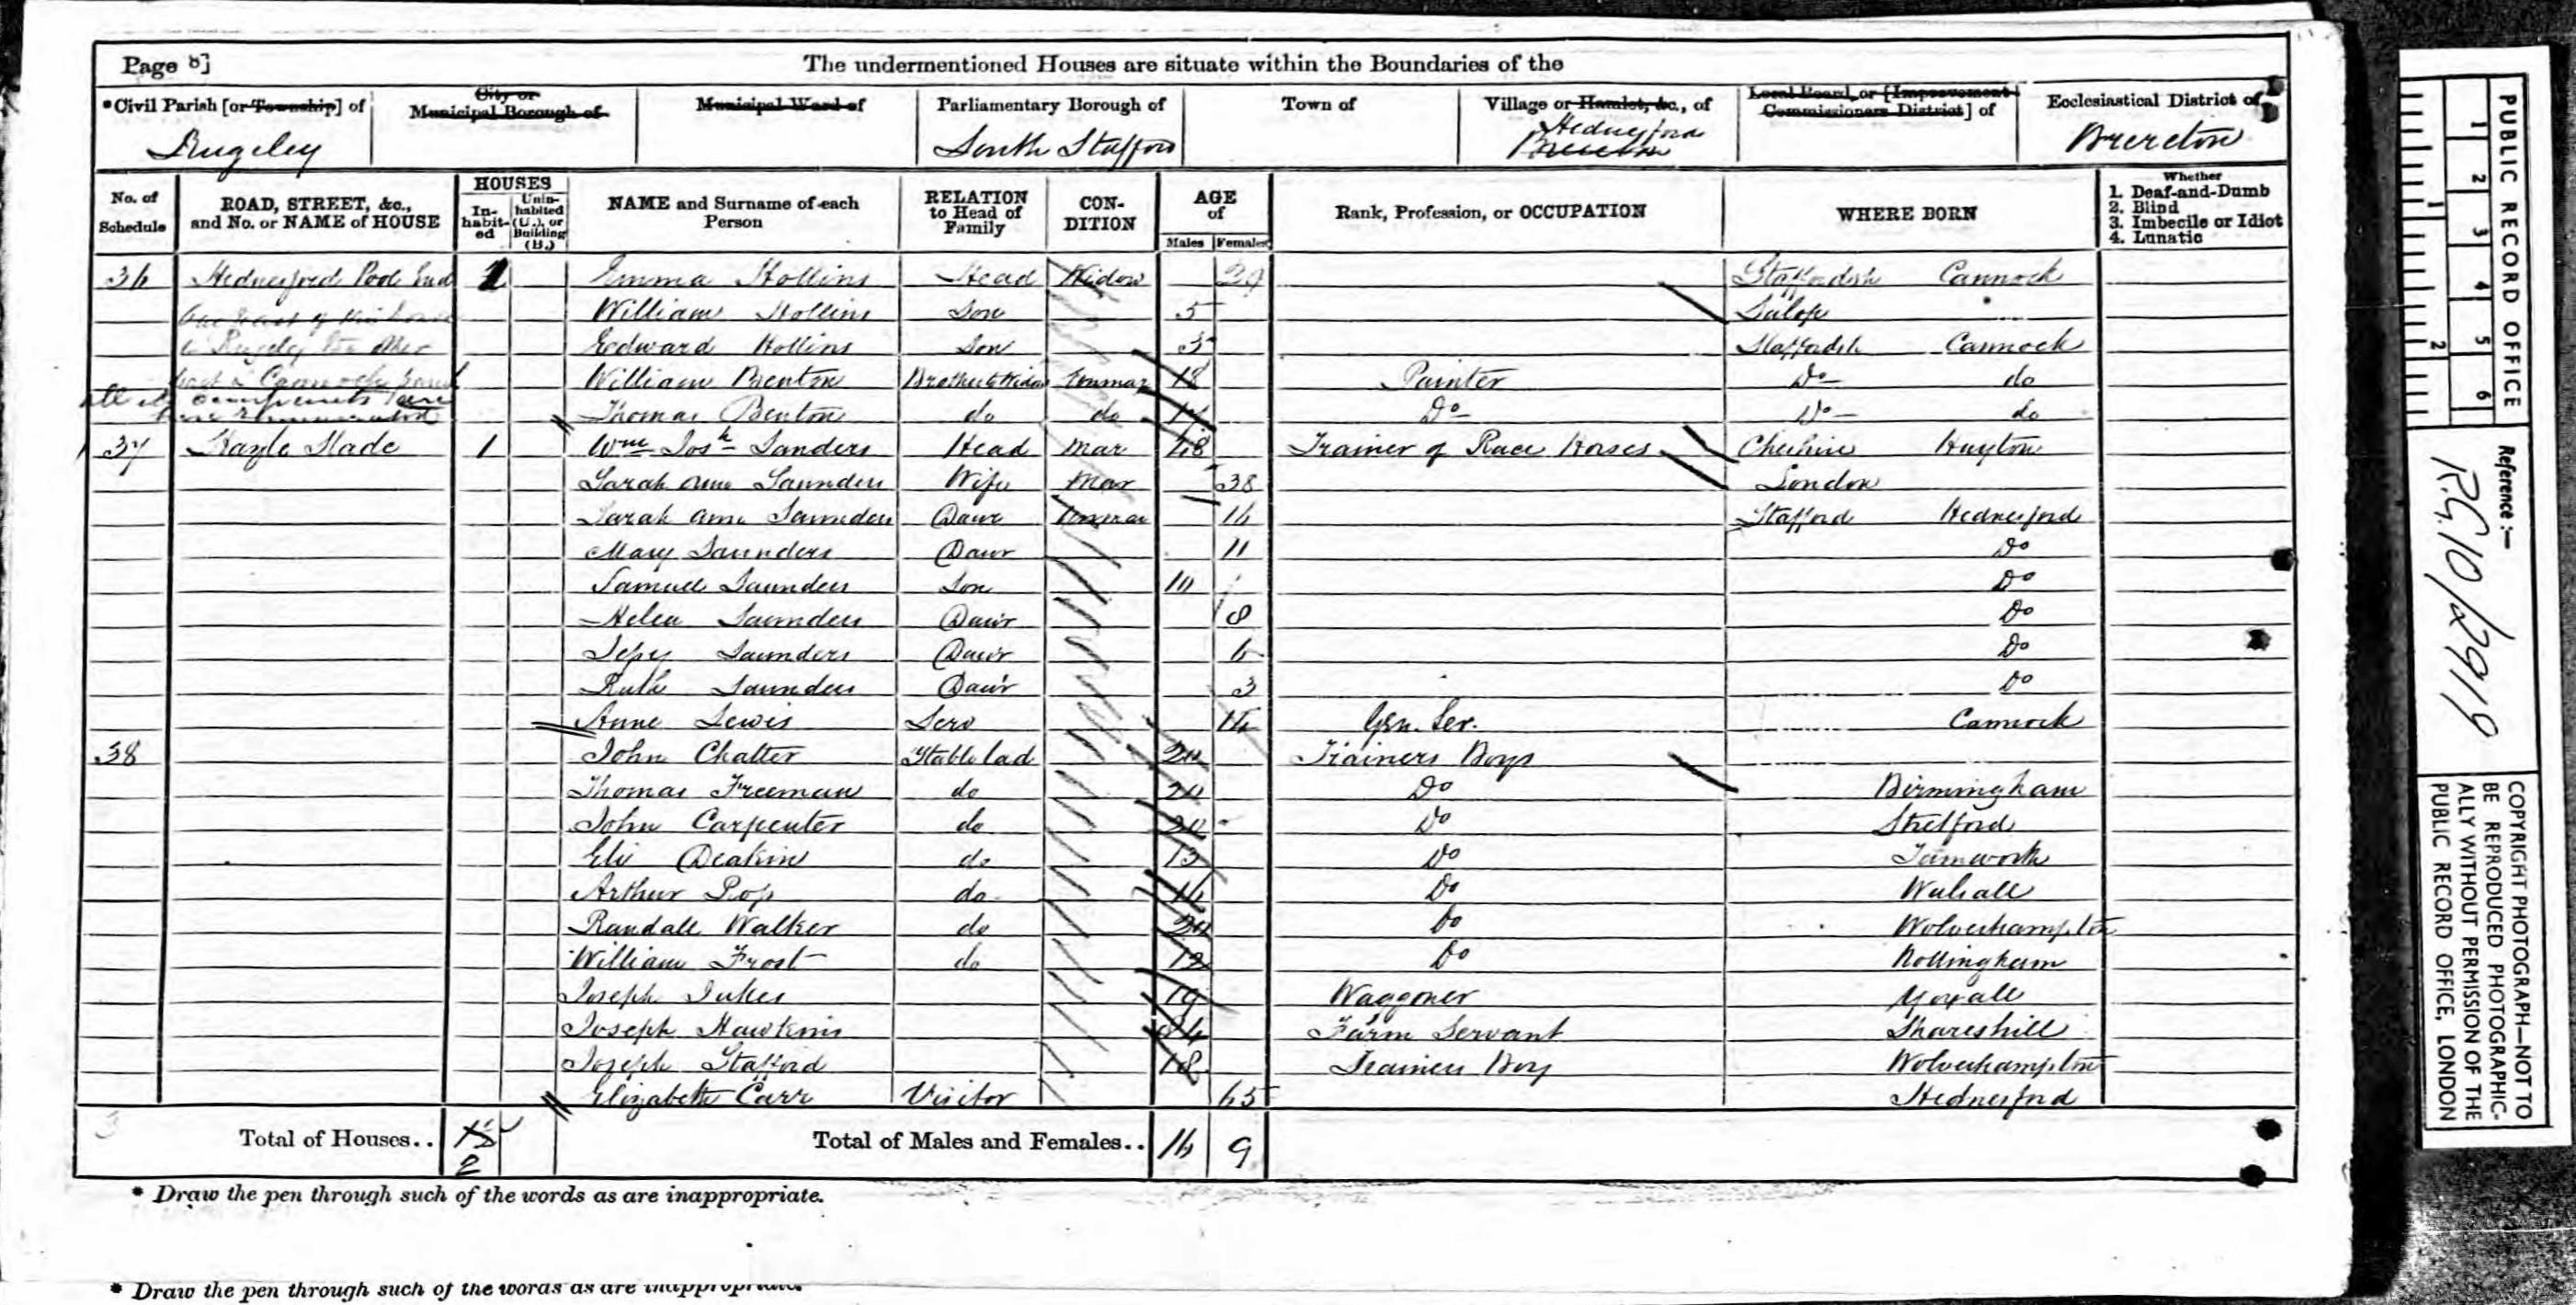 Page 8]
The undermentioned Houses are situate within the Boundaries of the
*Civil Parish [or Township] of
City or Municipal Borough of
Municipal Ward of
Parliamentary Borough of
Town of
Village or Hamlet, &c., of
Local Board, or [Improvement Commissioners District] of
Ecclesiastical District of
Rugeley
South Stafford
Hednesford
Brereton
Brereton
No. of Schedule
ROAD, STREET, &c., and No. or NAME of HOUSE
HOUSES
In-habit-ed
Unin-habited (U.), or Building (B.)
NAME and Surname of each Person
RELATION to Head of Family
CON-DITION
AGE of
Males
Females
Rank, Profession, or OCCUPATION
WHERE BORN
Whether
1. Deaf-and-Dumb
2. Blind
3. Imbecile or Idiot
4. Lunatic
36 Hednesford Pool End 1 Emma Hollins Head Widow 29 Staffordsh Cannock
William Hollins Son 5 Salop
Rugeley the other Edward Hollins Son 3 Staffordsh Cannock
part in Cannock William Benton Brother to Widow Unmar 18 Painter Do do
Thomas Benton do do Do Do do
37 Hazle Slade 1 Wm Josh Sanders Head Mar 48 Trainer of Race Horses Cheshire Huyton
Sarah Ann Saunders Wife Mar 38 London
Sarah Ann Saunders Daur Unmar 16 Stafford Hednesford
Mary Saunders Daur 11 Do
Samuel Saunders Son 10 Do
Helen Saunders Daur 8 Do
Saunders Daur 6 Do
Ruth Saunders Daur 3 Do
Anne Lewis Serv 16 Gen. Ser. Cannock
38 John Chatter Stable lad 20 Trainers Boys
Thomas Freeman do 20 Do Birmingham
John Carpenter do 20 Do Stretford
Eli Deakin do 13 Do Tamworth
Arthur do 16 Do Walsall
Randall Walker do 20 Do Wolverhampton
William Frost do 12 Do Nottingham
Joseph Jukes 19 Waggoner Yoxall
Joseph Hawkins Farm Servant Shareshill
Joseph Stafford 18 Trainers Boy Wolverhampton
Elizabeth Carr Visitor 65 Hednesford
3
Total of Houses.. 2
Total of Males and Females.. 16 9
* Draw the pen through such of the words as are inappropriate.
* Draw the pen through such of the words as are inappropriate.
PUBLIC RECORD OFFICE
1 2 3 4 5 6
1 2
Reference :—
R.G. 10/2919
COPYRIGHT PHOTOGRAPH—NOT TO
BE REPRODUCED PHOTOGRAPHIC-
ALLY WITHOUT PERMISSION OF THE
PUBLIC RECORD OFFICE, LONDON